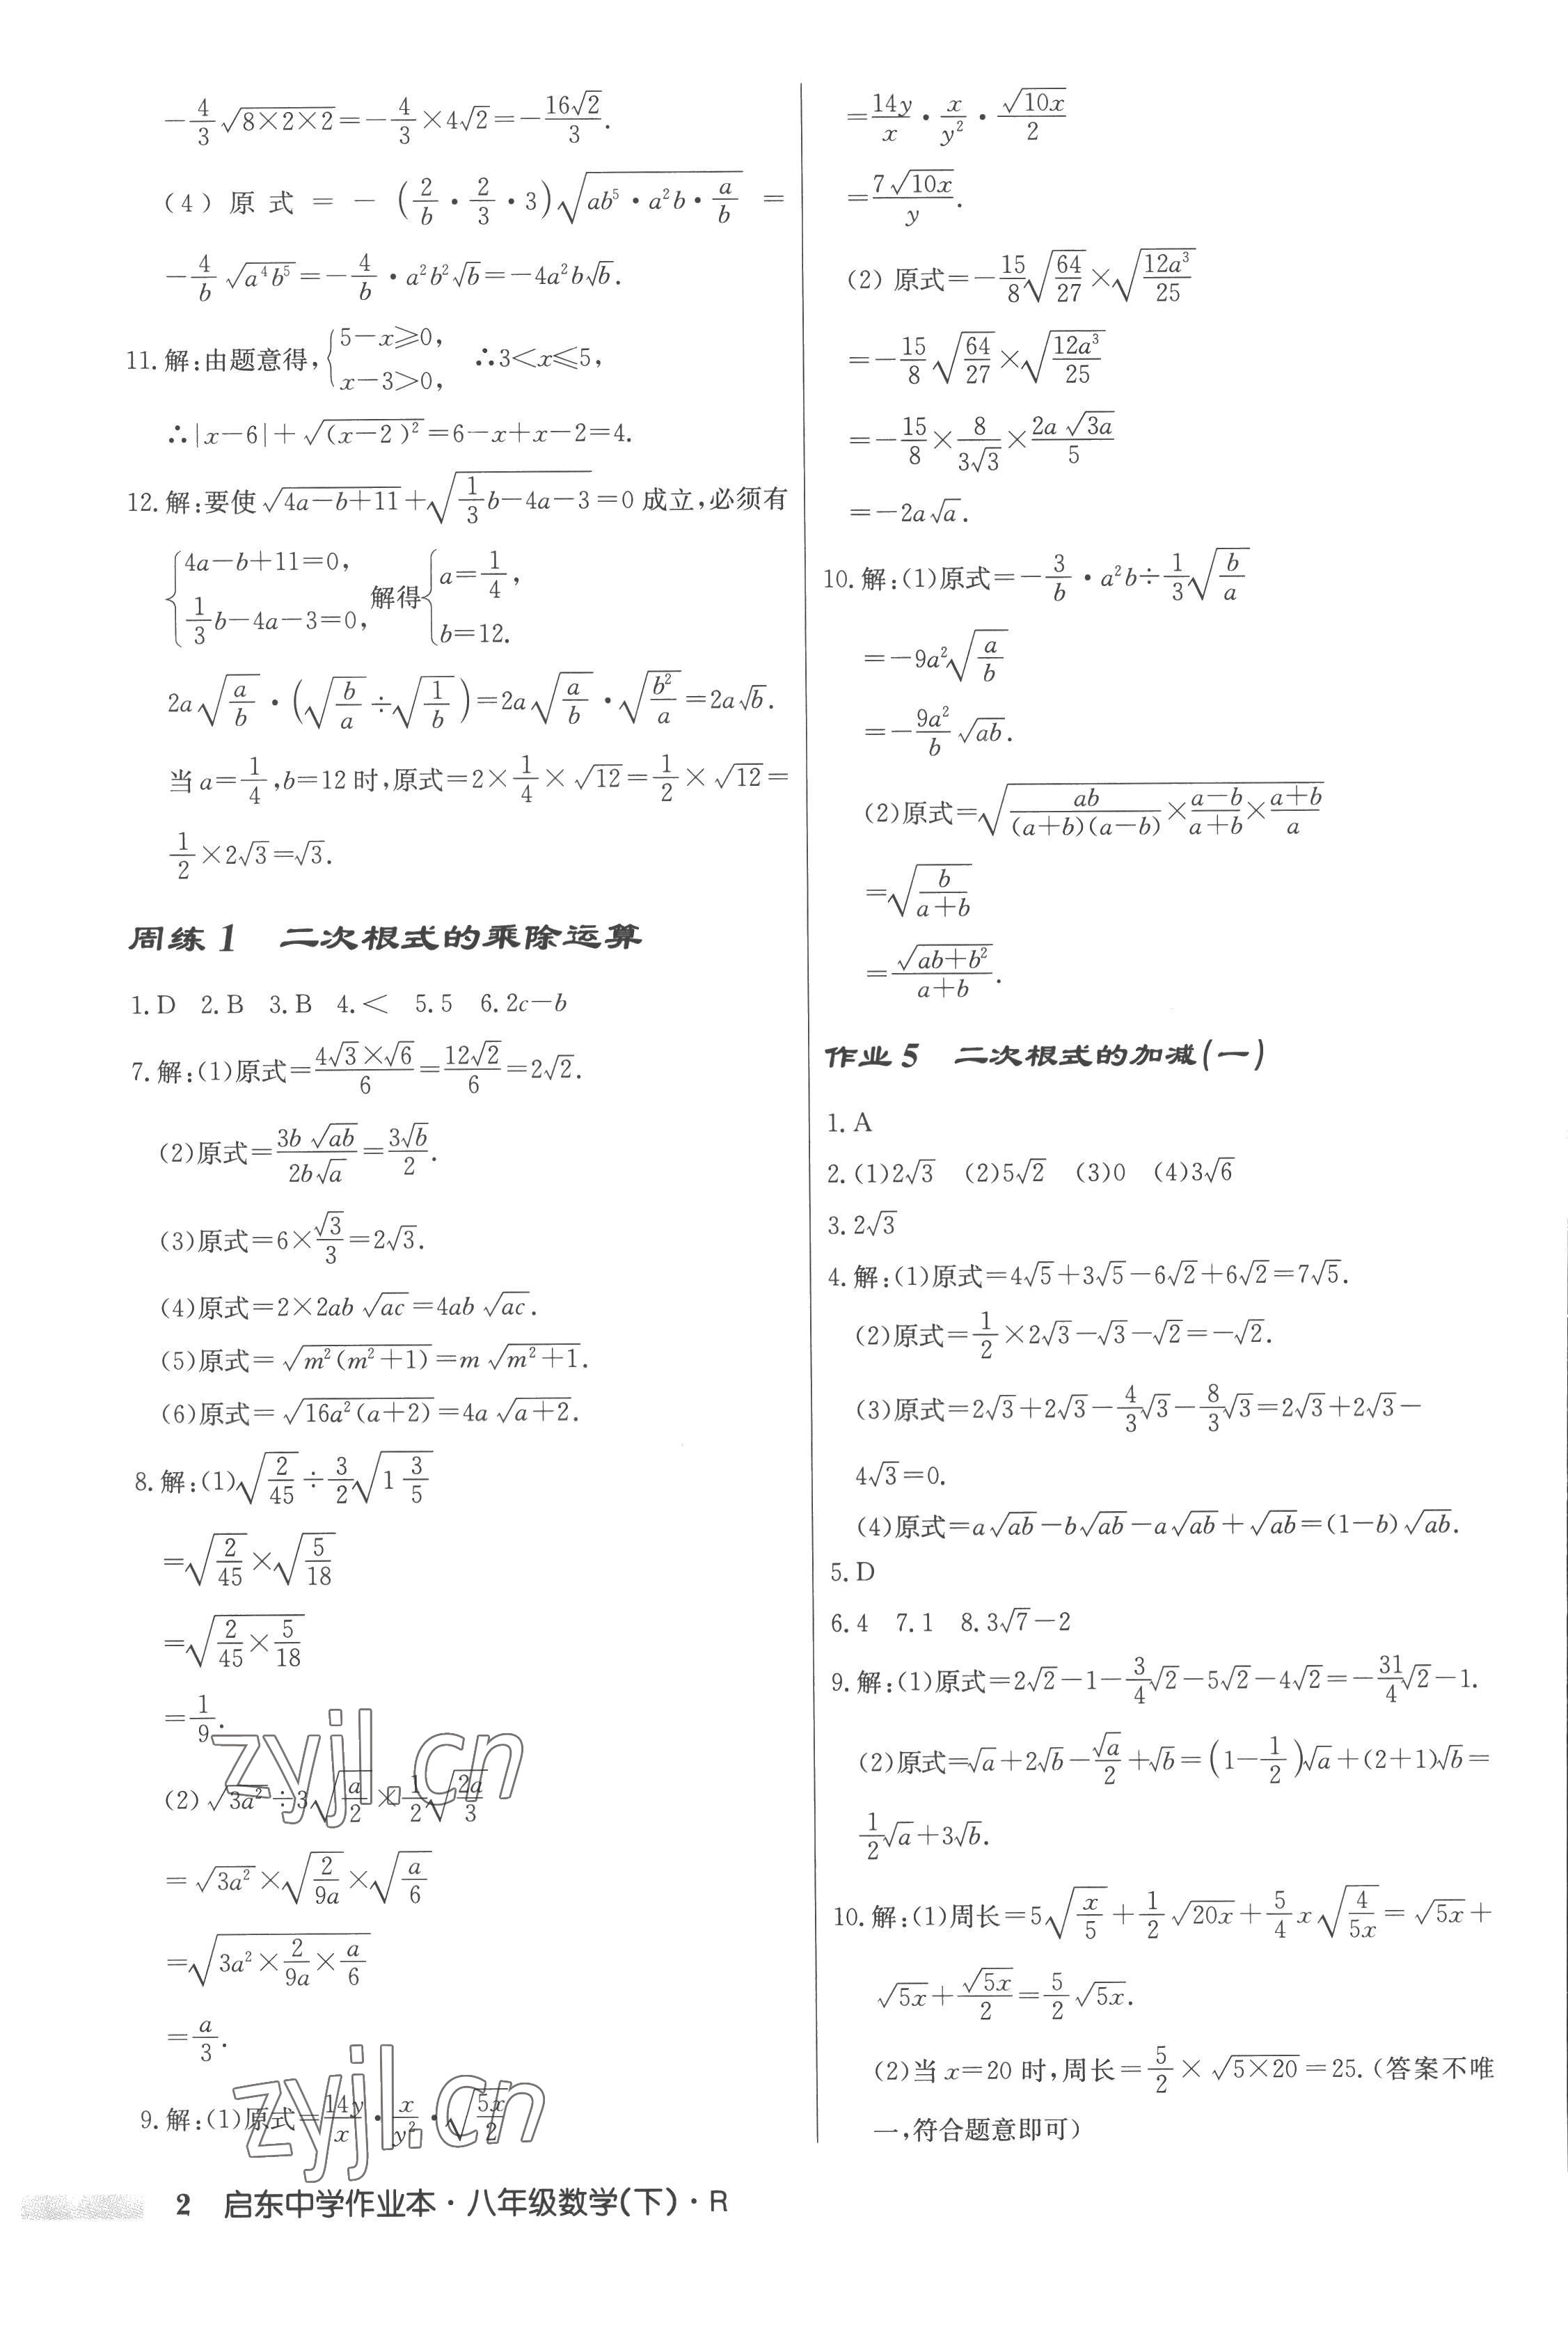 $-\frac{4}{3}\sqrt{8×2×2}=-\frac{4}{3}×4\sqrt{2}=-\frac{16\sqrt{2}}{3}.$
(4)原式$=-\left(\frac{2}{b}·\frac{2}{3}·3\right)\sqrt{ab^5·a^2b·\frac{a}{b}}=$
$-\frac{4}{b}\sqrt{a^4b^5}=-\frac{4}{b}·a^2b^2\sqrt{b}=-4a^2b\sqrt{b}.$
11.解:由题意得,$\begin{cases}5-x≥0,\\x-3>0,\end{cases}$ ∴3<x≤5,
∴$|x-6|+\sqrt{(x-2)^2}=6-x+x-2=4.$
12.解:要使$\sqrt{4a-b+11}+\sqrt{\frac{1}{3}b-4a-3}=0$成立,必须有
$\begin{cases}4a-b+11=0,\\\frac{1}{3}b-4a-3=0,\end{cases}$解得$\begin{cases}a=\frac{1}{4},\\b=12.\end{cases}$
$2a\sqrt{\frac{a}{b}}·\left(\sqrt{\frac{b}{a}}÷\sqrt{\frac{1}{b}}\right)=2a\sqrt{\frac{a}{b}}·\sqrt{\frac{b^2}{a}}=2a\sqrt{b}.$
当$a=\frac{1}{4}$,b=12时,原式$=2×\frac{1}{4}×\sqrt{12}=\frac{1}{2}×\sqrt{12}=$
$\frac{1}{2}×2\sqrt{3}=\sqrt{3}.$
周练1 二次根式的乘除运算
1.D 2.B 3.B 4.< 5.5 6.2c-b
7.解:(1)原式$=\frac{4\sqrt{3}×\sqrt{6}}{6}=\frac{12\sqrt{2}}{6}=2\sqrt{2}.$
(2)原式$=\frac{3b\sqrt{ab}}{2b\sqrt{a}}=\frac{3\sqrt{b}}{2}.$
(3)原式$=6×\frac{\sqrt{3}}{3}=2\sqrt{3}.$
(4)原式$=2×2ab\sqrt{ac}=4ab\sqrt{ac}.$
(5)原式$=\sqrt{m^2(m^2+1)}=m\sqrt{m^2+1}.$
(6)原式$=\sqrt{16a^2(a+2)}=4a\sqrt{a+2}.$
8.解:(1)$\sqrt{\frac{2}{45}}÷\frac{3}{2}\sqrt{1\frac{3}{5}}$
$=\sqrt{\frac{2}{45}}×\sqrt{\frac{5}{18}}$
$=\sqrt{\frac{2}{45}×\frac{5}{18}}$
$=\frac{1}{9}.$
zyjl.cn
(2)$\sqrt{3a^2}÷3\sqrt{\frac{a}{2}}×\frac{1}{2}\sqrt{\frac{2a}{3}}$
$=\sqrt{3a^2}×\sqrt{\frac{2}{9a}}×\sqrt{\frac{a}{6}}$
$=\sqrt{3a^2×\frac{2}{9a}×\frac{a}{6}}$
$=\frac{a}{3}.$
zyjl.cn
9.解:(1)原式$=\frac{14y}{x}·\frac{x}{y^2}·\sqrt{\frac{5x}{2}}$
$=\frac{14y}{x}·\frac{x}{y^2}·\frac{\sqrt{10x}}{2}$
$=\frac{7\sqrt{10x}}{y}.$
(2)原式$=-\frac{15}{8}\sqrt{\frac{64}{27}}×\sqrt{\frac{12a^3}{25}}$
$=-\frac{15}{8}\sqrt{\frac{64}{27}}×\sqrt{\frac{12a^3}{25}}$
$=-\frac{15}{8}×\frac{8}{3\sqrt{3}}×\frac{2a\sqrt{3a}}{5}$
$=-2a\sqrt{a}.$
10.解:(1)原式$=-\frac{3}{b}·a^2b÷\frac{1}{3}\sqrt{\frac{b}{a}}$
$=-9a^2\sqrt{\frac{a}{b}}$
$=-\frac{9a^2}{b}\sqrt{ab}.$
(2)原式$=\sqrt{\frac{ab}{(a+b)(a-b)}×\frac{a-b}{a+b}×\frac{a+b}{a}}$
$=\sqrt{\frac{b}{a+b}}$
$=\frac{\sqrt{ab+b^2}}{a+b}.$
作业5 二次根式的加减(一)
1.A
2.(1)$2\sqrt{3}$ (2)$5\sqrt{2}$ (3)0 (4)$3\sqrt{6}$
3.$2\sqrt{3}$
4.解:(1)原式$=4\sqrt{5}+3\sqrt{5}-6\sqrt{2}+6\sqrt{2}=7\sqrt{5}.$
(2)原式$=\frac{1}{2}×2\sqrt{3}-\sqrt{3}-\sqrt{2}=-\sqrt{2}.$
(3)原式$=2\sqrt{3}+2\sqrt{3}-\frac{4}{3}\sqrt{3}-\frac{8}{3}\sqrt{3}=2\sqrt{3}+2\sqrt{3}-$
$4\sqrt{3}=0.$
(4)原式$=a\sqrt{ab}-b\sqrt{ab}-a\sqrt{ab}+\sqrt{ab}=(1-b)\sqrt{ab}.$
5.D
6.4 7.1 8.$3\sqrt{7}-2$
9.解:(1)原式$=2\sqrt{2}-1-\frac{3}{4}\sqrt{2}-5\sqrt{2}-4\sqrt{2}=-\frac{31}{4}\sqrt{2}-1.$
(2)原式$=\sqrt{a}+2\sqrt{b}-\frac{\sqrt{a}}{2}+\sqrt{b}=\left(1-\frac{1}{2}\right)\sqrt{a}+(2+1)\sqrt{b}=$
$\frac{1}{2}\sqrt{a}+3\sqrt{b}.$
10.解:(1)周长$=5\sqrt{\frac{x}{5}}+\frac{1}{2}\sqrt{20x}+\frac{5}{4}x\sqrt{\frac{4}{5x}}=\sqrt{5x}+$
$\sqrt{5x}+\frac{\sqrt{5x}}{2}=\frac{5}{2}\sqrt{5x}.$
(2)当x=20时,周长$=\frac{5}{2}×\sqrt{5×20}=25.$(答案不唯
一,符合题意即可)
2 启东中学作业本·八年级数学(下)·R